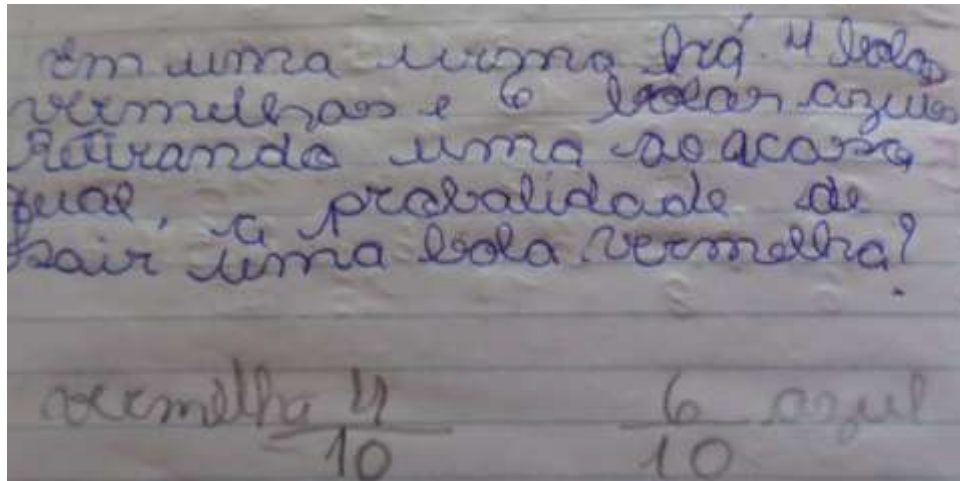 Em uma urna há 4 bolas
vermelhas e 6 bolas azuis
Retirando uma ao acaso,
qual, a probalidade de
sair uma bola vermelha?
vermelha 4/10 6/10 azul